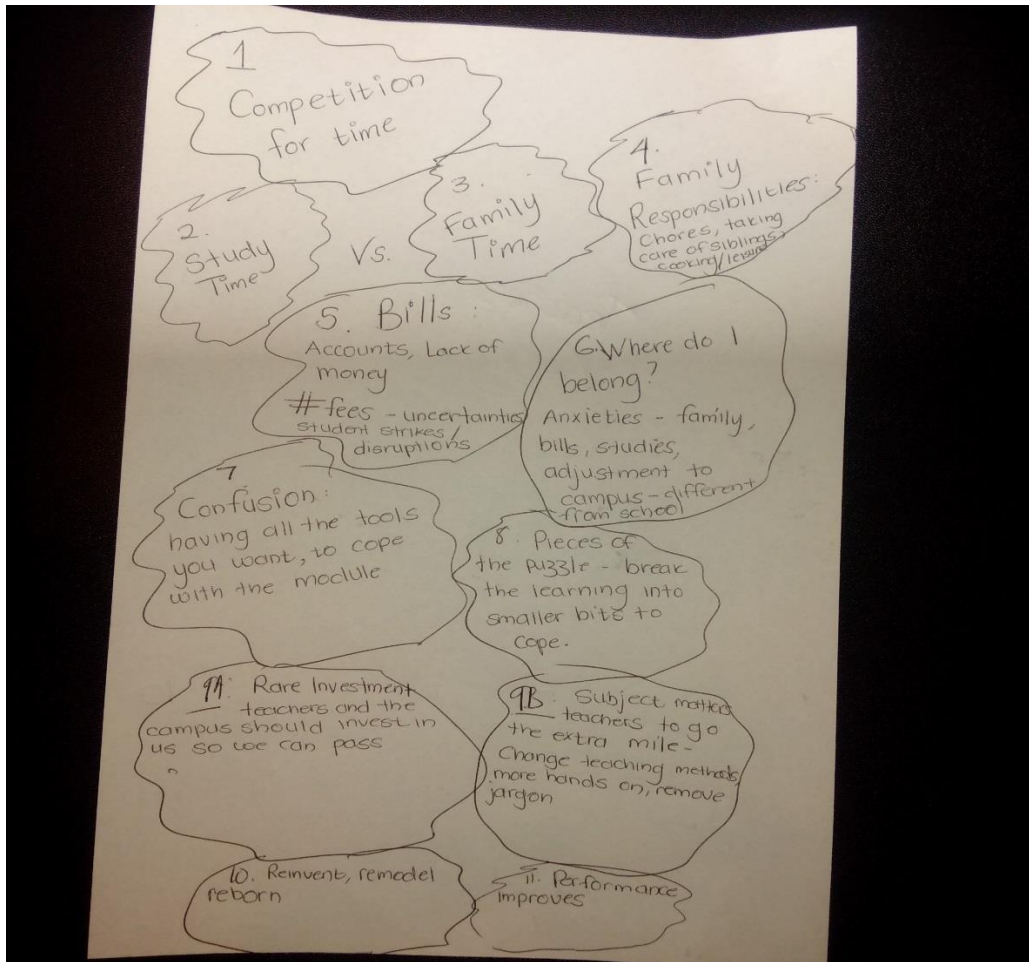 1
Competition
for time
2.
Study
Time
Vs.
3.
Family
Time
4.
Family
Responsibilities:
Chores, taking
care of siblings,
cooking/leisure
5. Bills:
Accounts, Lack of
money
#fees - uncertainties
student strikes/
disruptions
6. Where do I
belong?
Anxieties - family,
bills, studies,
adjustment to
campus - different
from school
7
Confusion:
having all the tools
you want, to cope
with the module
8. Pieces of
the puzzle - break
the learning into
smaller bits to
cope.
9A: Rare Investment
teachers and the
campus should invest in
us so we can pass
9B. Subject matters
teachers to go
the extra mile -
Change teaching methods,
more hands on, remove
jargon
10. Reinvent, remodel
reborn
11. Performance
improves